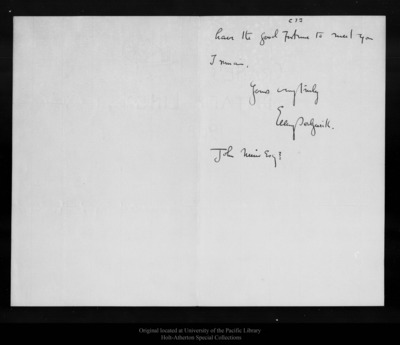 C33
have the good fortune to meet you
I remain,
Yours very truly
Ellery Sedgwick.
John Muir Esq?
Original located at University of the Pacific Library
Holt-Atherton Special Collections